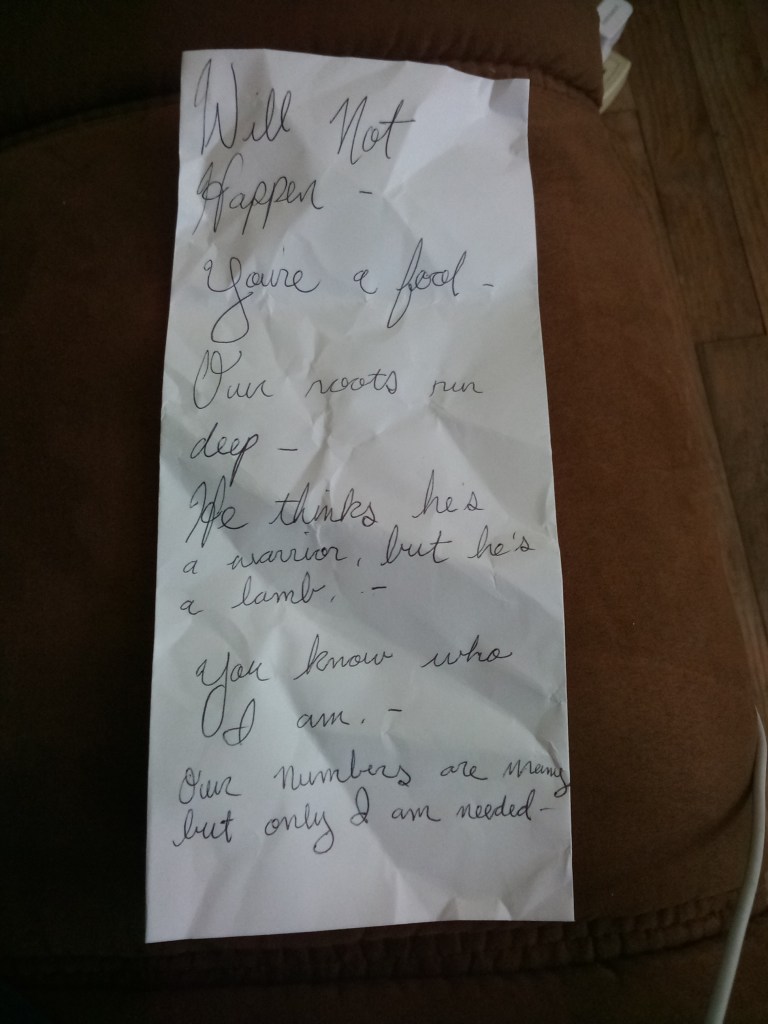 Will Not
Happen -
You're a fool -
Our roots run
deep -
He thinks he's
a warrior, but he's
a lamb. -
You know who
I am. -
Our numbers are many
but only I am needed -